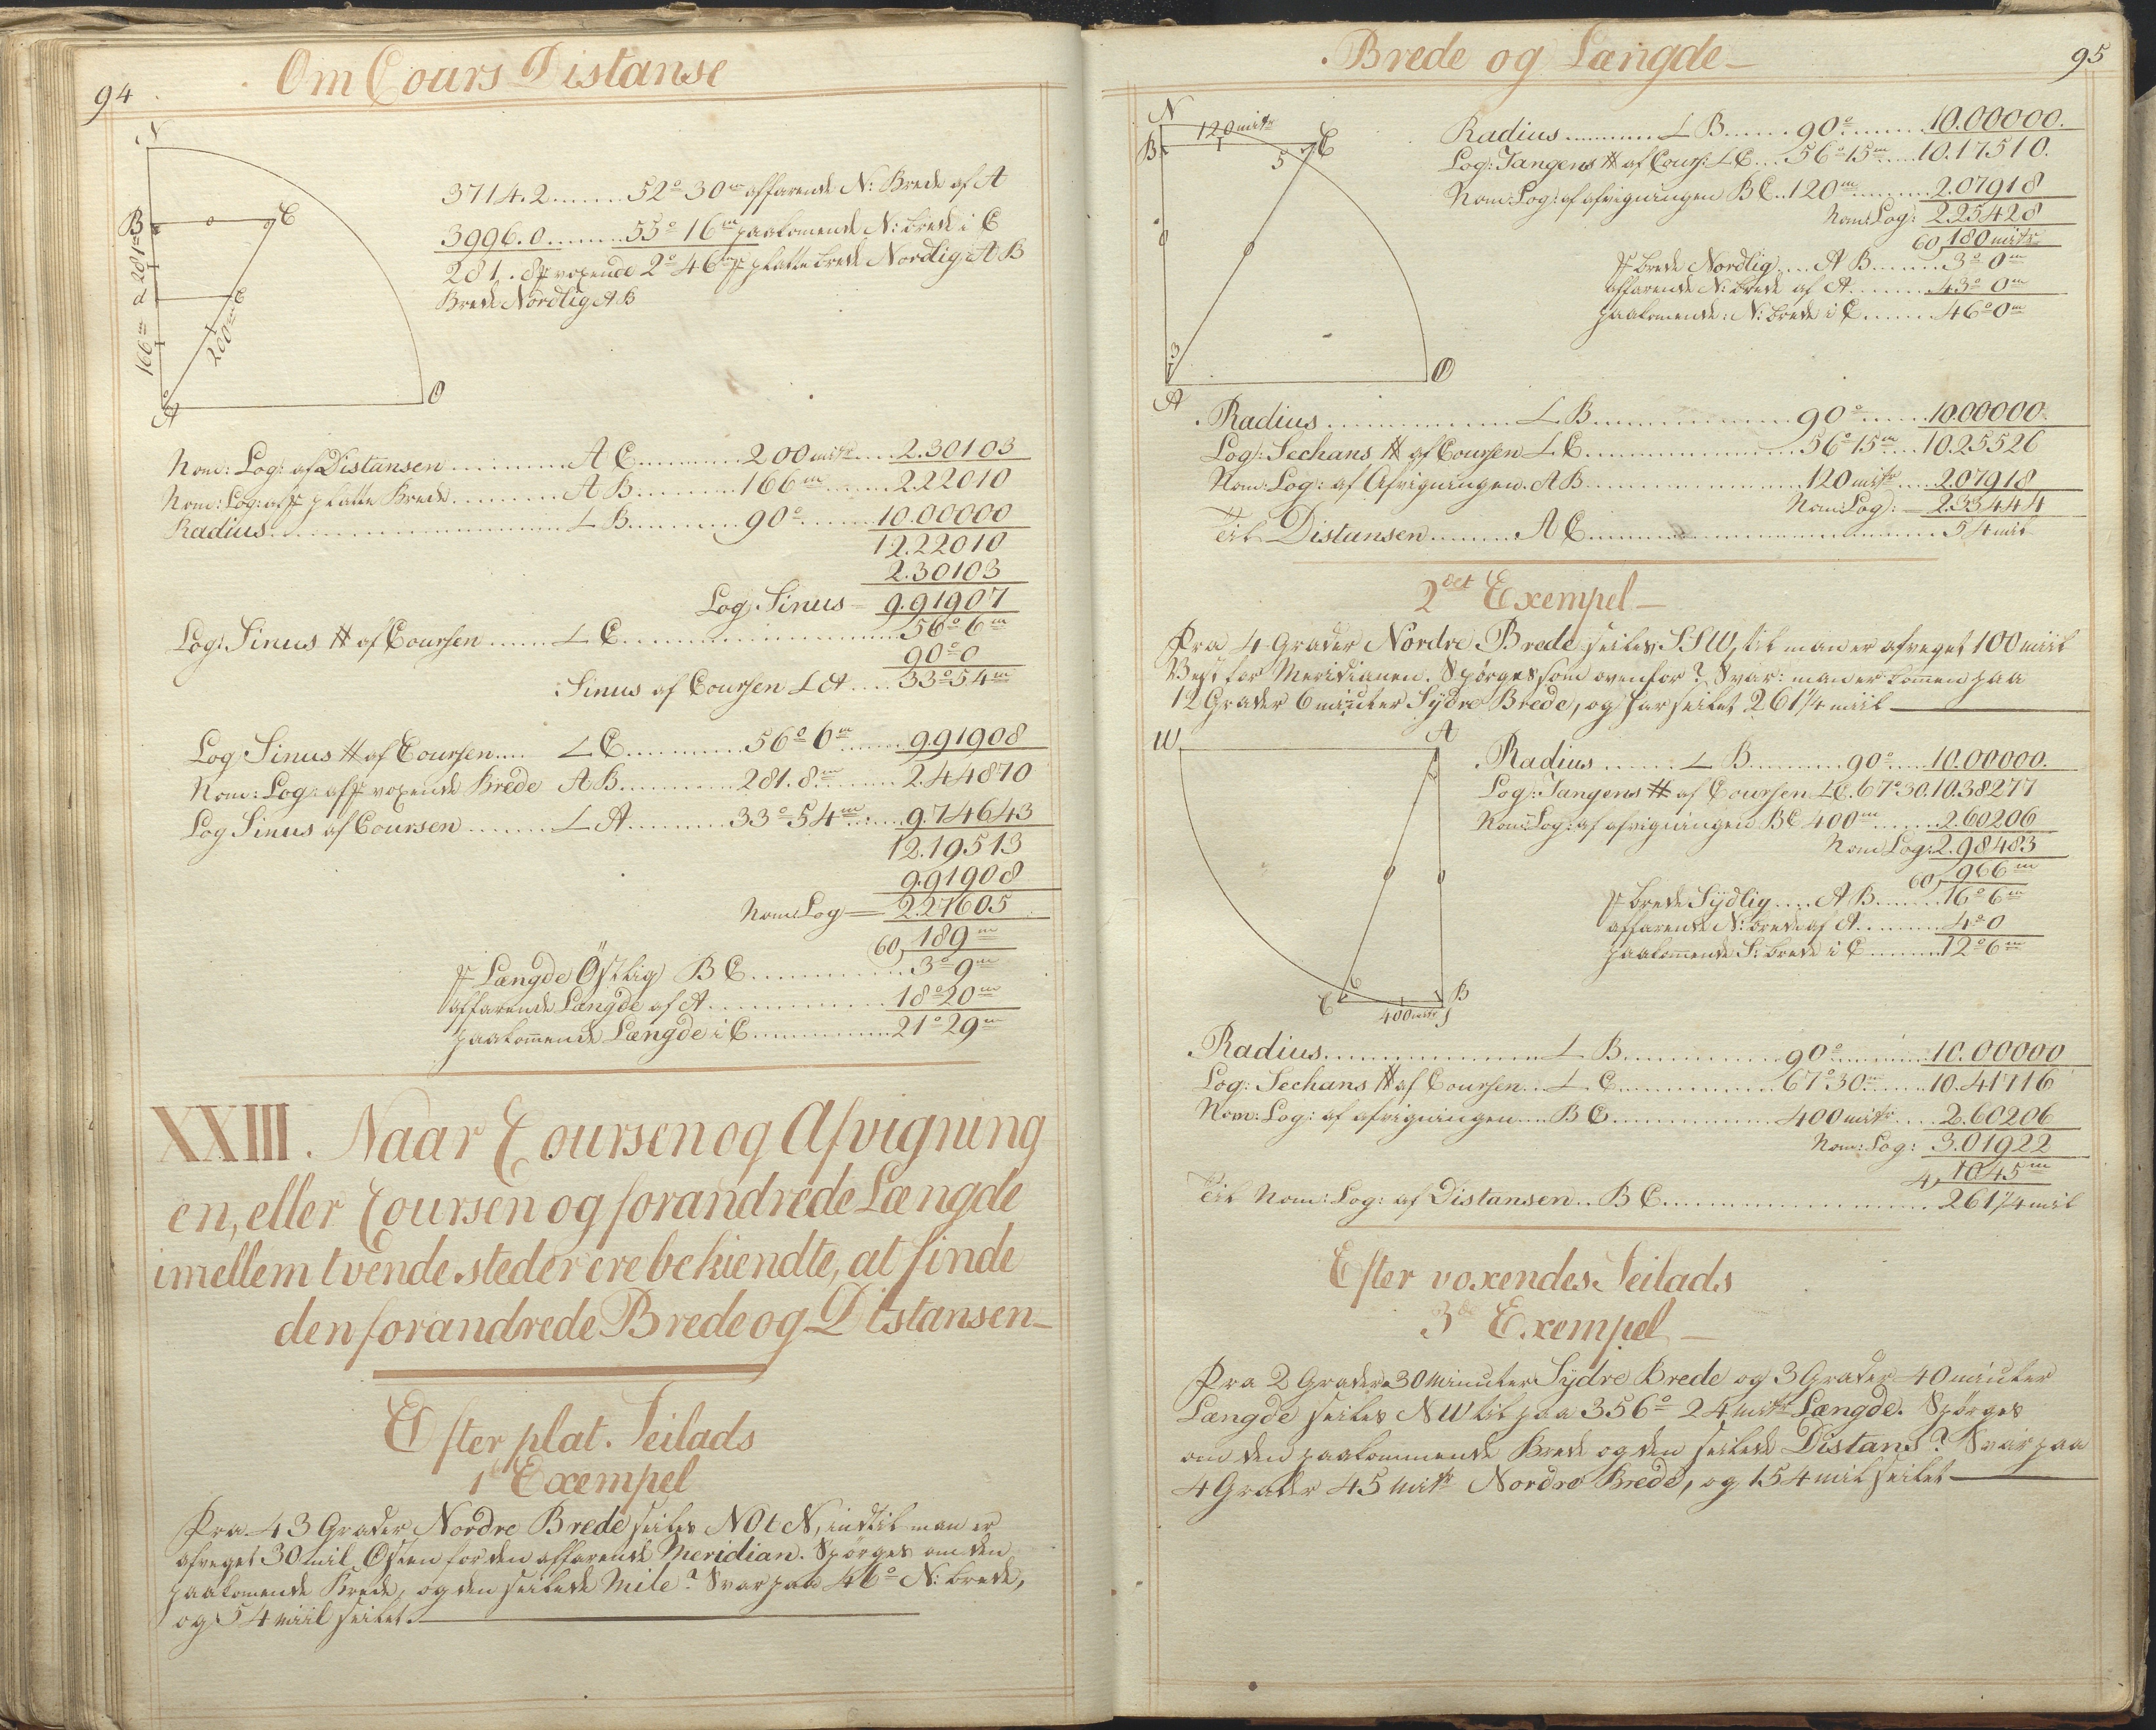 94
Om Cours Distanse
N
B
C
281 m
d
e
166 m
200 m
A
O
3714.2 ....... 52° 30 m affarende N: Brede af A
3996.0 ........ 55° 16 m paakomende N: brede i C
281.8 voxende 2° 46 m platte brede Nordlig A B
Brede Nordlig AB
Nom: Log: af Distansen ............ A C .......... 200 mitr .... 2.30103
Nom: Log: af platte Brede .......... A B .......... 166 m ........ 2.22010
Radius .............................. L B .......... 90° ........ 10.00000
12.22010
2.30103
Log: Sinus = 9.91907
Log: Sinus # af Coursen ...... L C ........................ 56° 6 m
90° 0
Sinus af Coursen L A .... 33° 54 m
Log Sinus # af Coursen .... L C ............ 56° 6 m ....... 9.91908
Nom: Log: af voxende Brede A B ............ 281.8 m ....... 2.44870
Log Sinus af Coursen ........ L A .......... 33° 54 m ...... 9.74643
12.19513
9.91908
Nom: Log = 2.27605
60, 189 m
Længde Östlig B C ............... 3° 9 m
affarende Længde af A ................. 18° 20 m
paakommende Længde i C ............... 21° 29 m
XXIII. Naar Coursen og Afvigning
en, eller Coursen og forandrede Længde
imellem tvende steder ere bekiendte, at finde
den forandrede Brede og Distansen
Efter plat. Seilads
1t Exempel
Fra 43 Grader Nordre Brede seiles NOtN, indtil man er
afveget 30 mil Østen for den affarende Meridian. Spörges om den
paakomende Brede, og den seilede Mile? Svar paa 46° N: brede,
og 54 miil seilet.
95
Brede og Længde
N
120 mitr
B
C
5
3
A
O
Radius ............ L B ...... 90° ........ 10.00000.
Log: Tangens # af Cours: L C ... 56° 15 m .... 10.17510.
Nom: Log: af afvigningen B C .. 120 m ......... 2.07918
Nom: Log: 2.25428
60, 180 mitr
brede Nordlig .... A B ....... 3° 0 m
affarende N: brede af A ........ 43° 0 m
paakomende: N: brede i C ....... 46° 0 m
Radius ..................... L B ................. 90° ...... 10.00000.
Log: Sechans # af Coursen L C ..................... 56° 15 m ... 10.25526
Nom: Log: af Afvigningen. A B ..................... 120 mitr .... 2.07918
Nom: Log: = 2.33444
Til Distansen ......... A C ................................. 54 mil
2det Exempel
Fra 4 Grader Nordre Brede seiles SSW, til man er afveget 100 miil
Vest for Meridianen. Spörges som ovenfor? Svar: man er kommen paa
12 Grader 6 minuter Sydre Brede, og har seilet 261 1/4 miil
W
A
C
6
B
400 mitr
Radius ....... L B .......... 90° .... 10.00000.
Log: Tangens # af Coursen L C. 67° 30. 10.38277
Nom: Log: af afvigningen B C 400 m ....... 2.60206
Nom: Log: 2.98483
60, 966 m
brede Sydlig .... A B ...... 16° 6 m
affarende N: brede af A ......... 4° 0
paakommende S: brede i C ........ 12° 6 m
Radius ........................ L B ............... 90° .......... 10.00000
Log: Sechans # af Coursen ... L C ............... 67° 30 m ....... 10.41716
Nom: Log: af afvigningen .... B C ................. 400 mitr ..... 2.60206
Nom: Log: 3.01922
4, 1045 m
Til Nom: Log: af Distansen .. B C ........................... 261 1/4 mil
Efter voxendes Seilads
3de Exempel
Fra 2 Grader 30 Minuter Sydre Brede og 3 Grader 40 minuter
Længde seiles NW til paa 356° 24 mitr Længde. Spörges
om den paakommende Brede og den seilede Distans? Svar paa
4 Grader 45 mitr Nordre Brede, og 154 mil seilet